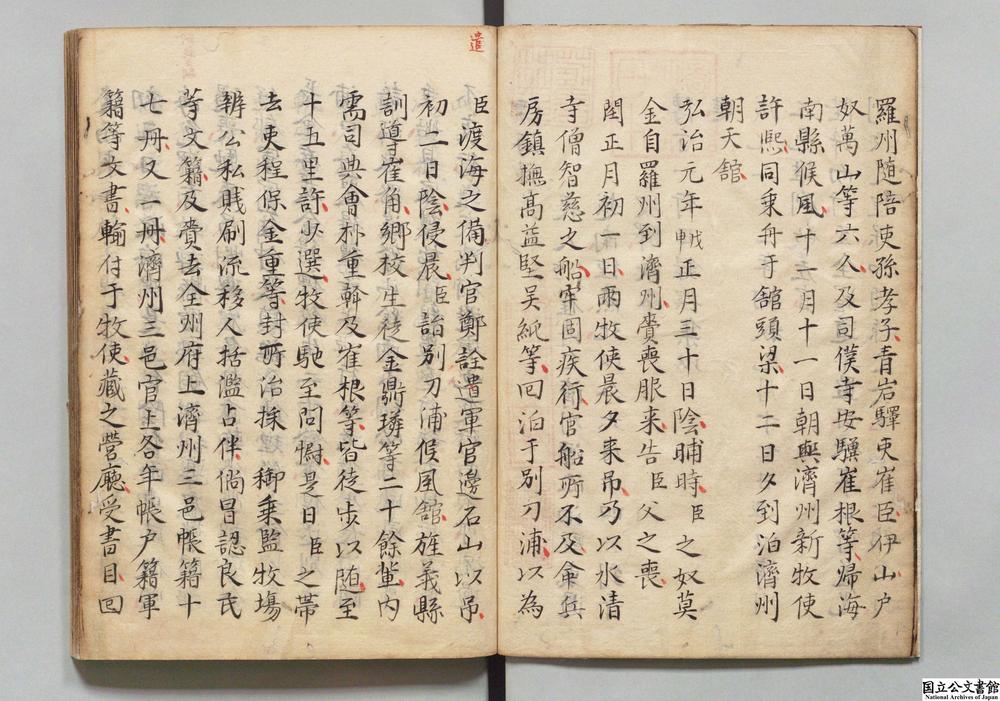 羅州随陪使孫孝子青岩驛吏崔臣伊山户
奴萬山等六人及司僕寺安驥崔根等帰海
南縣候風十一月十一日朝與濟州新牧使
許熙同乗舟于舘頭梁十二日夕到泊濟州
朝天舘
弘治元年戊申正月三十日陰晡時臣之奴莫
金自羅州到濟州賫喪服来告臣父之喪
閏正月初一日雨牧使晨夕来吊乃以水清
寺僧智慈之船牢固疾行官船所不及命兵
房鎮撫髙益堅吴純等回泊于别刀浦以為
遣
臣渡海之備判官鄭詮遣軍官邊石山以吊
初二日陰侵晨臣詣别刀浦候風舘旌義縣
訓導崔角郷校生徒金鼎璘等二十餘軰内
需司典會朴重幹及崔根等皆徒歩以随至
十五里許少選牧使馳至問慰是日臣之帯
去吏程保金重等封所治採御乗監牧塲
辨公私賎刷流移人括濫占伴倘冒認良民
等文籍及賫去全州府上濟州三邑帳籍十
七冊又一冊濟州三邑官上各年帳户籍軍
籍等文書輸付于牧使藏之營廳受書目回
国立公文書館
National Archives of Japan